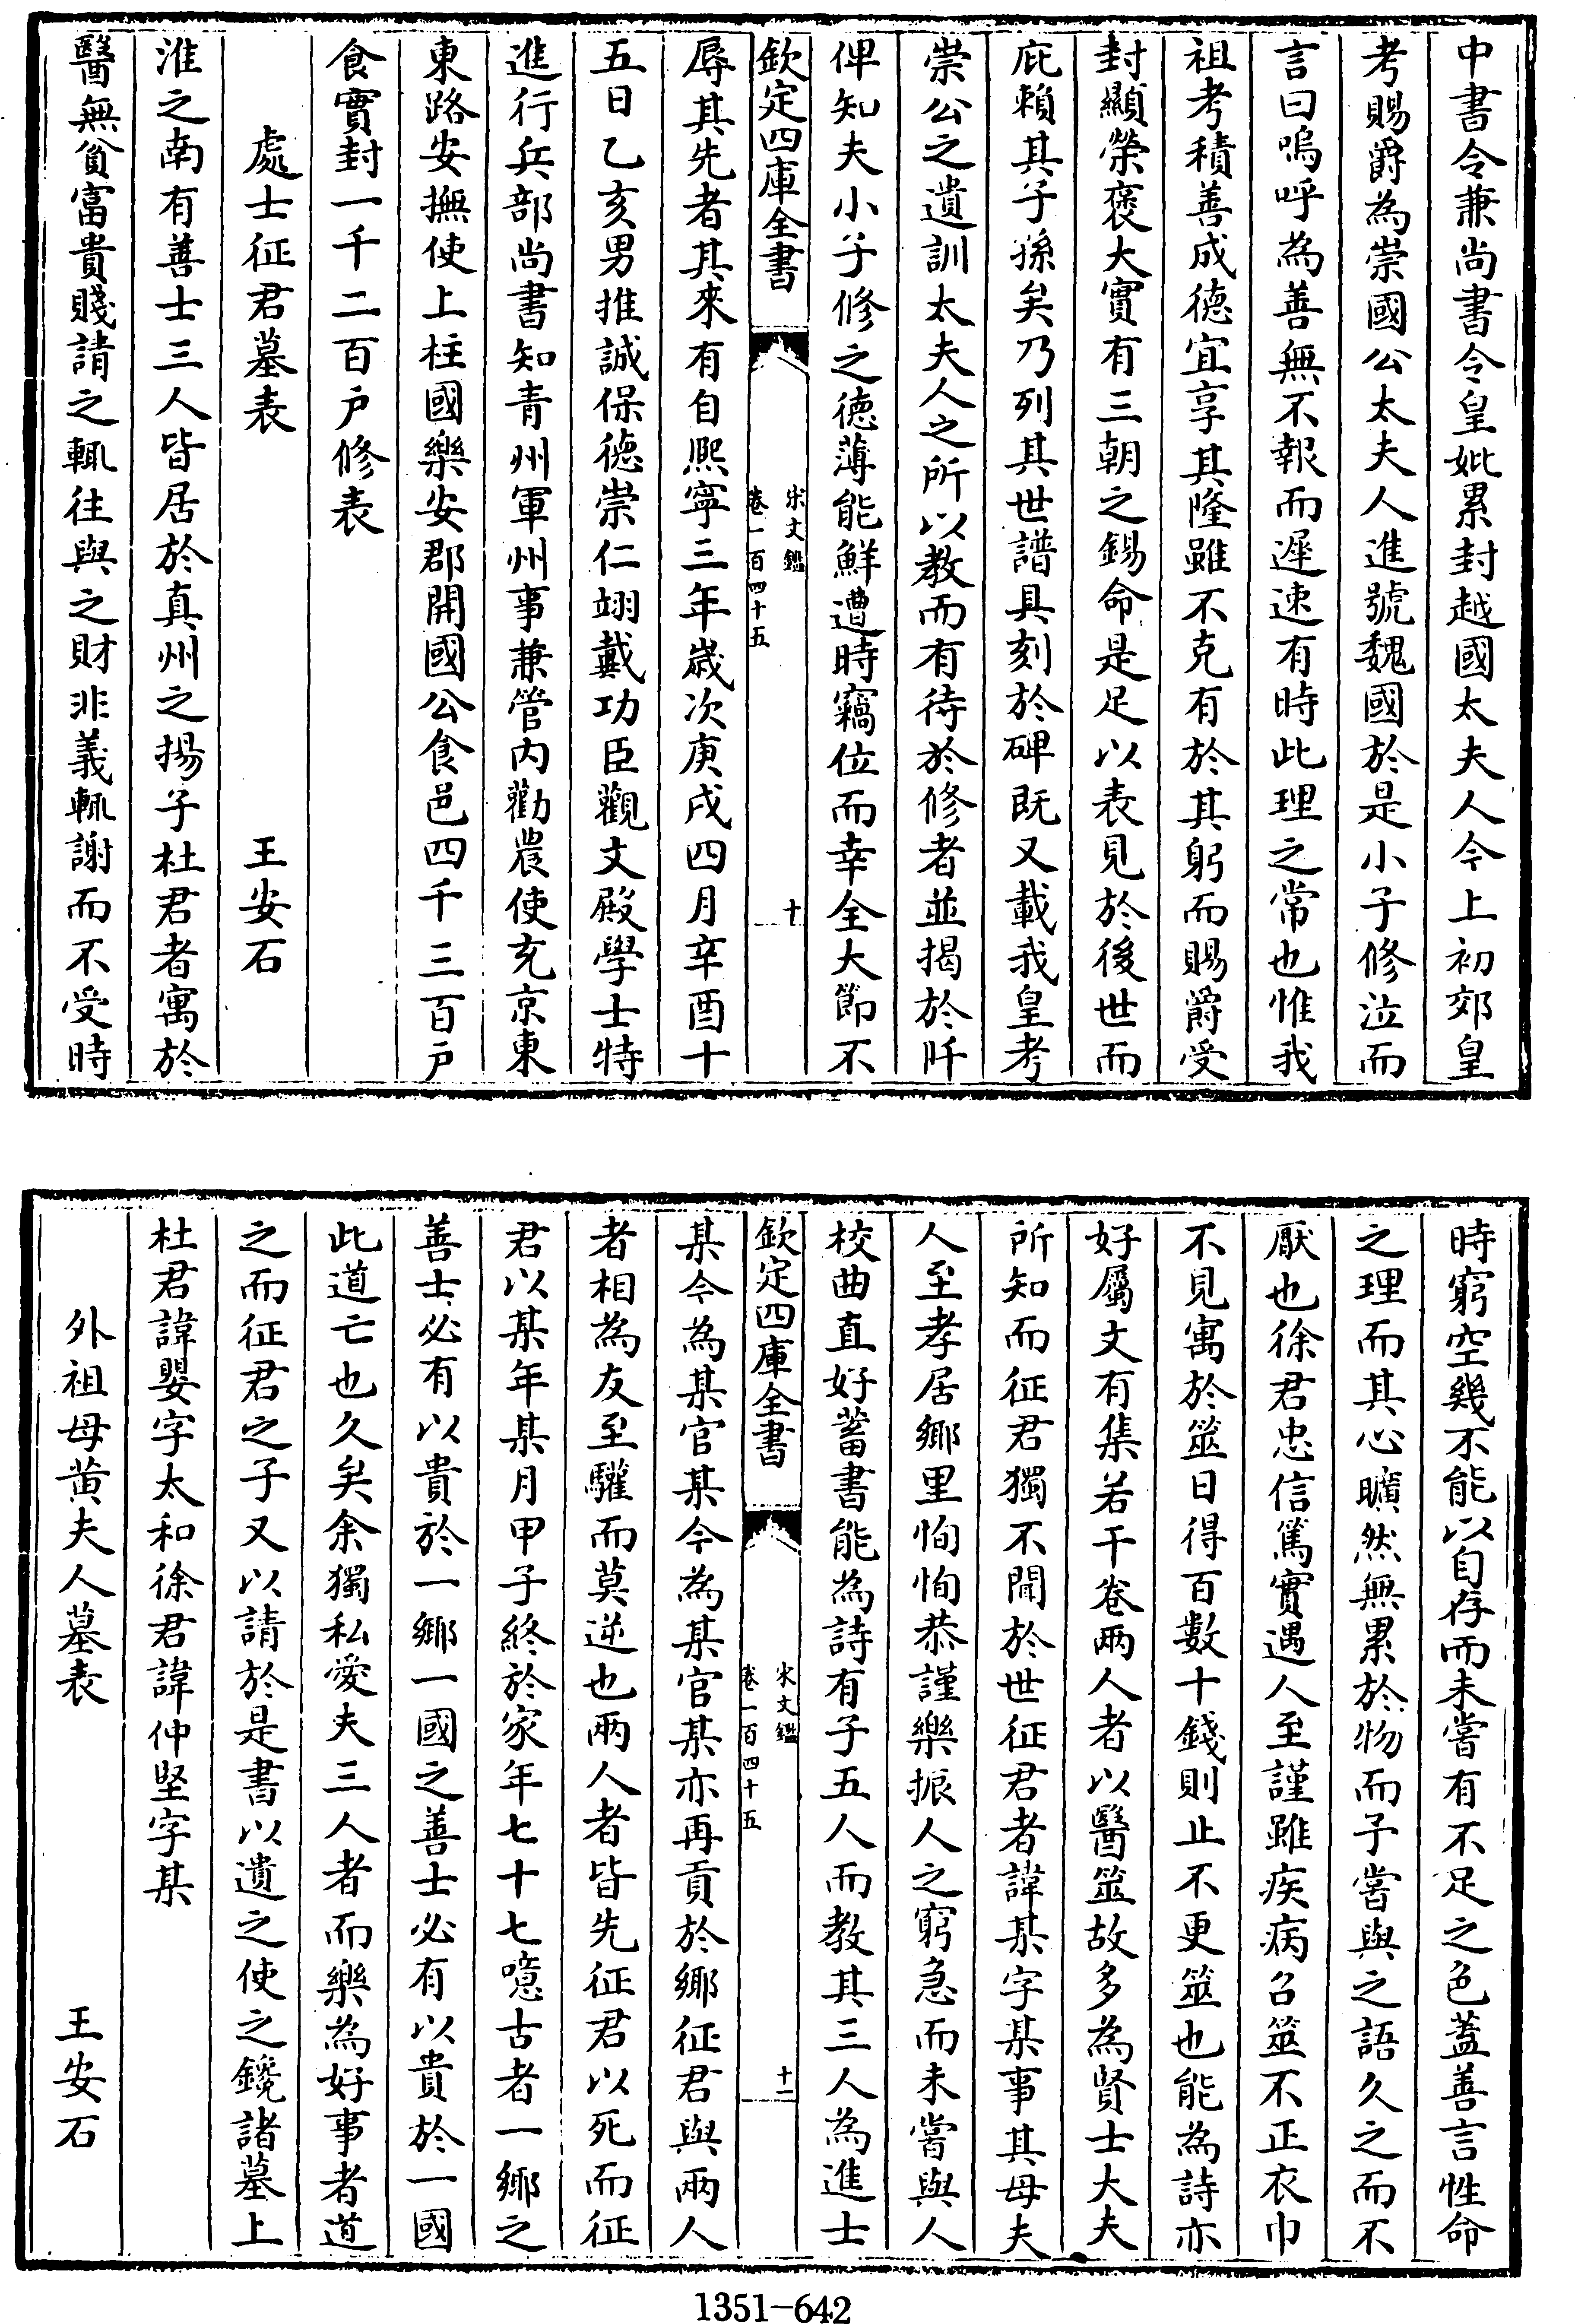 中書令兼尚書令皇妣累封越國太夫人今上初郊皇
考賜爵為崇國公太夫人進號魏國於是小子修泣而
言曰嗚呼為善無不報而遲速有時此理之常也惟我
祖考積善成德宜享其隆雖不克有於其躬而賜爵受
封顯榮褒大實有三朝之錫命是足以表見於後世而
庇賴其子孫矣乃列其世譜具刻於碑既又載我皇考
崇公之遺訓太夫人之所以教而有待於修者並揭於阡
俾知夫小子修之德薄能鮮遭時竊位而幸全大節不
欽定四庫全書
宋文鑑
卷一百四十五
十
辱其先者其來有自熙寧三年歲次庚戌四月辛酉十
五日乙亥男推誠保德崇仁翊戴功臣觀文殿學士特
進行兵部尚書知青州軍州事兼管內勸農使充京東
東路安撫使上柱國樂安郡開國公食邑四千三百戶
食實封一千二百戶修表
處士征君墓表 王安石
淮之南有善士三人皆居於真州之揚子杜君者寓於
醫無貧富貴賤請之輒往與之財非義輒謝而不受時
時窮空幾不能以自存而未嘗有不足之色蓋善言性命
之理而其心曠然無累於物而予嘗與之語久之而不
厭也徐君忠信篤實遇人至謹雖疾病召筮不正衣巾
不見寓於筮日得百數十錢則止不更筮也能為詩亦
好屬文有集若干卷兩人者以醫筮故多為賢士大夫
所知而征君獨不聞於世征君者諱某字某事其母夫
人至孝居鄉里恂恂恭謹樂振人之窮急而未嘗與人
校曲直好蓄書能為詩有子五人而教其三人為進士
欽定四庫全書
宋文鑑
卷一百四十五
十一
某今為某官某今為某官某亦再貢於鄉征君與兩人
者相為友至驩而莫逆也兩人者皆先征君以死而征
君以某年某月甲子終於家年七十七噫古者一鄉之
善士必有以貴於一鄉一國之善士必有以貴於一國
此道亡也久矣余獨私愛夫三人者而樂為好事者道
之而征君之子又以請於是書以遺之使之鑱諸墓上
杜君諱嬰字太和徐君諱仲堅字某
外祖母黃夫人墓表 王安石
1351-642